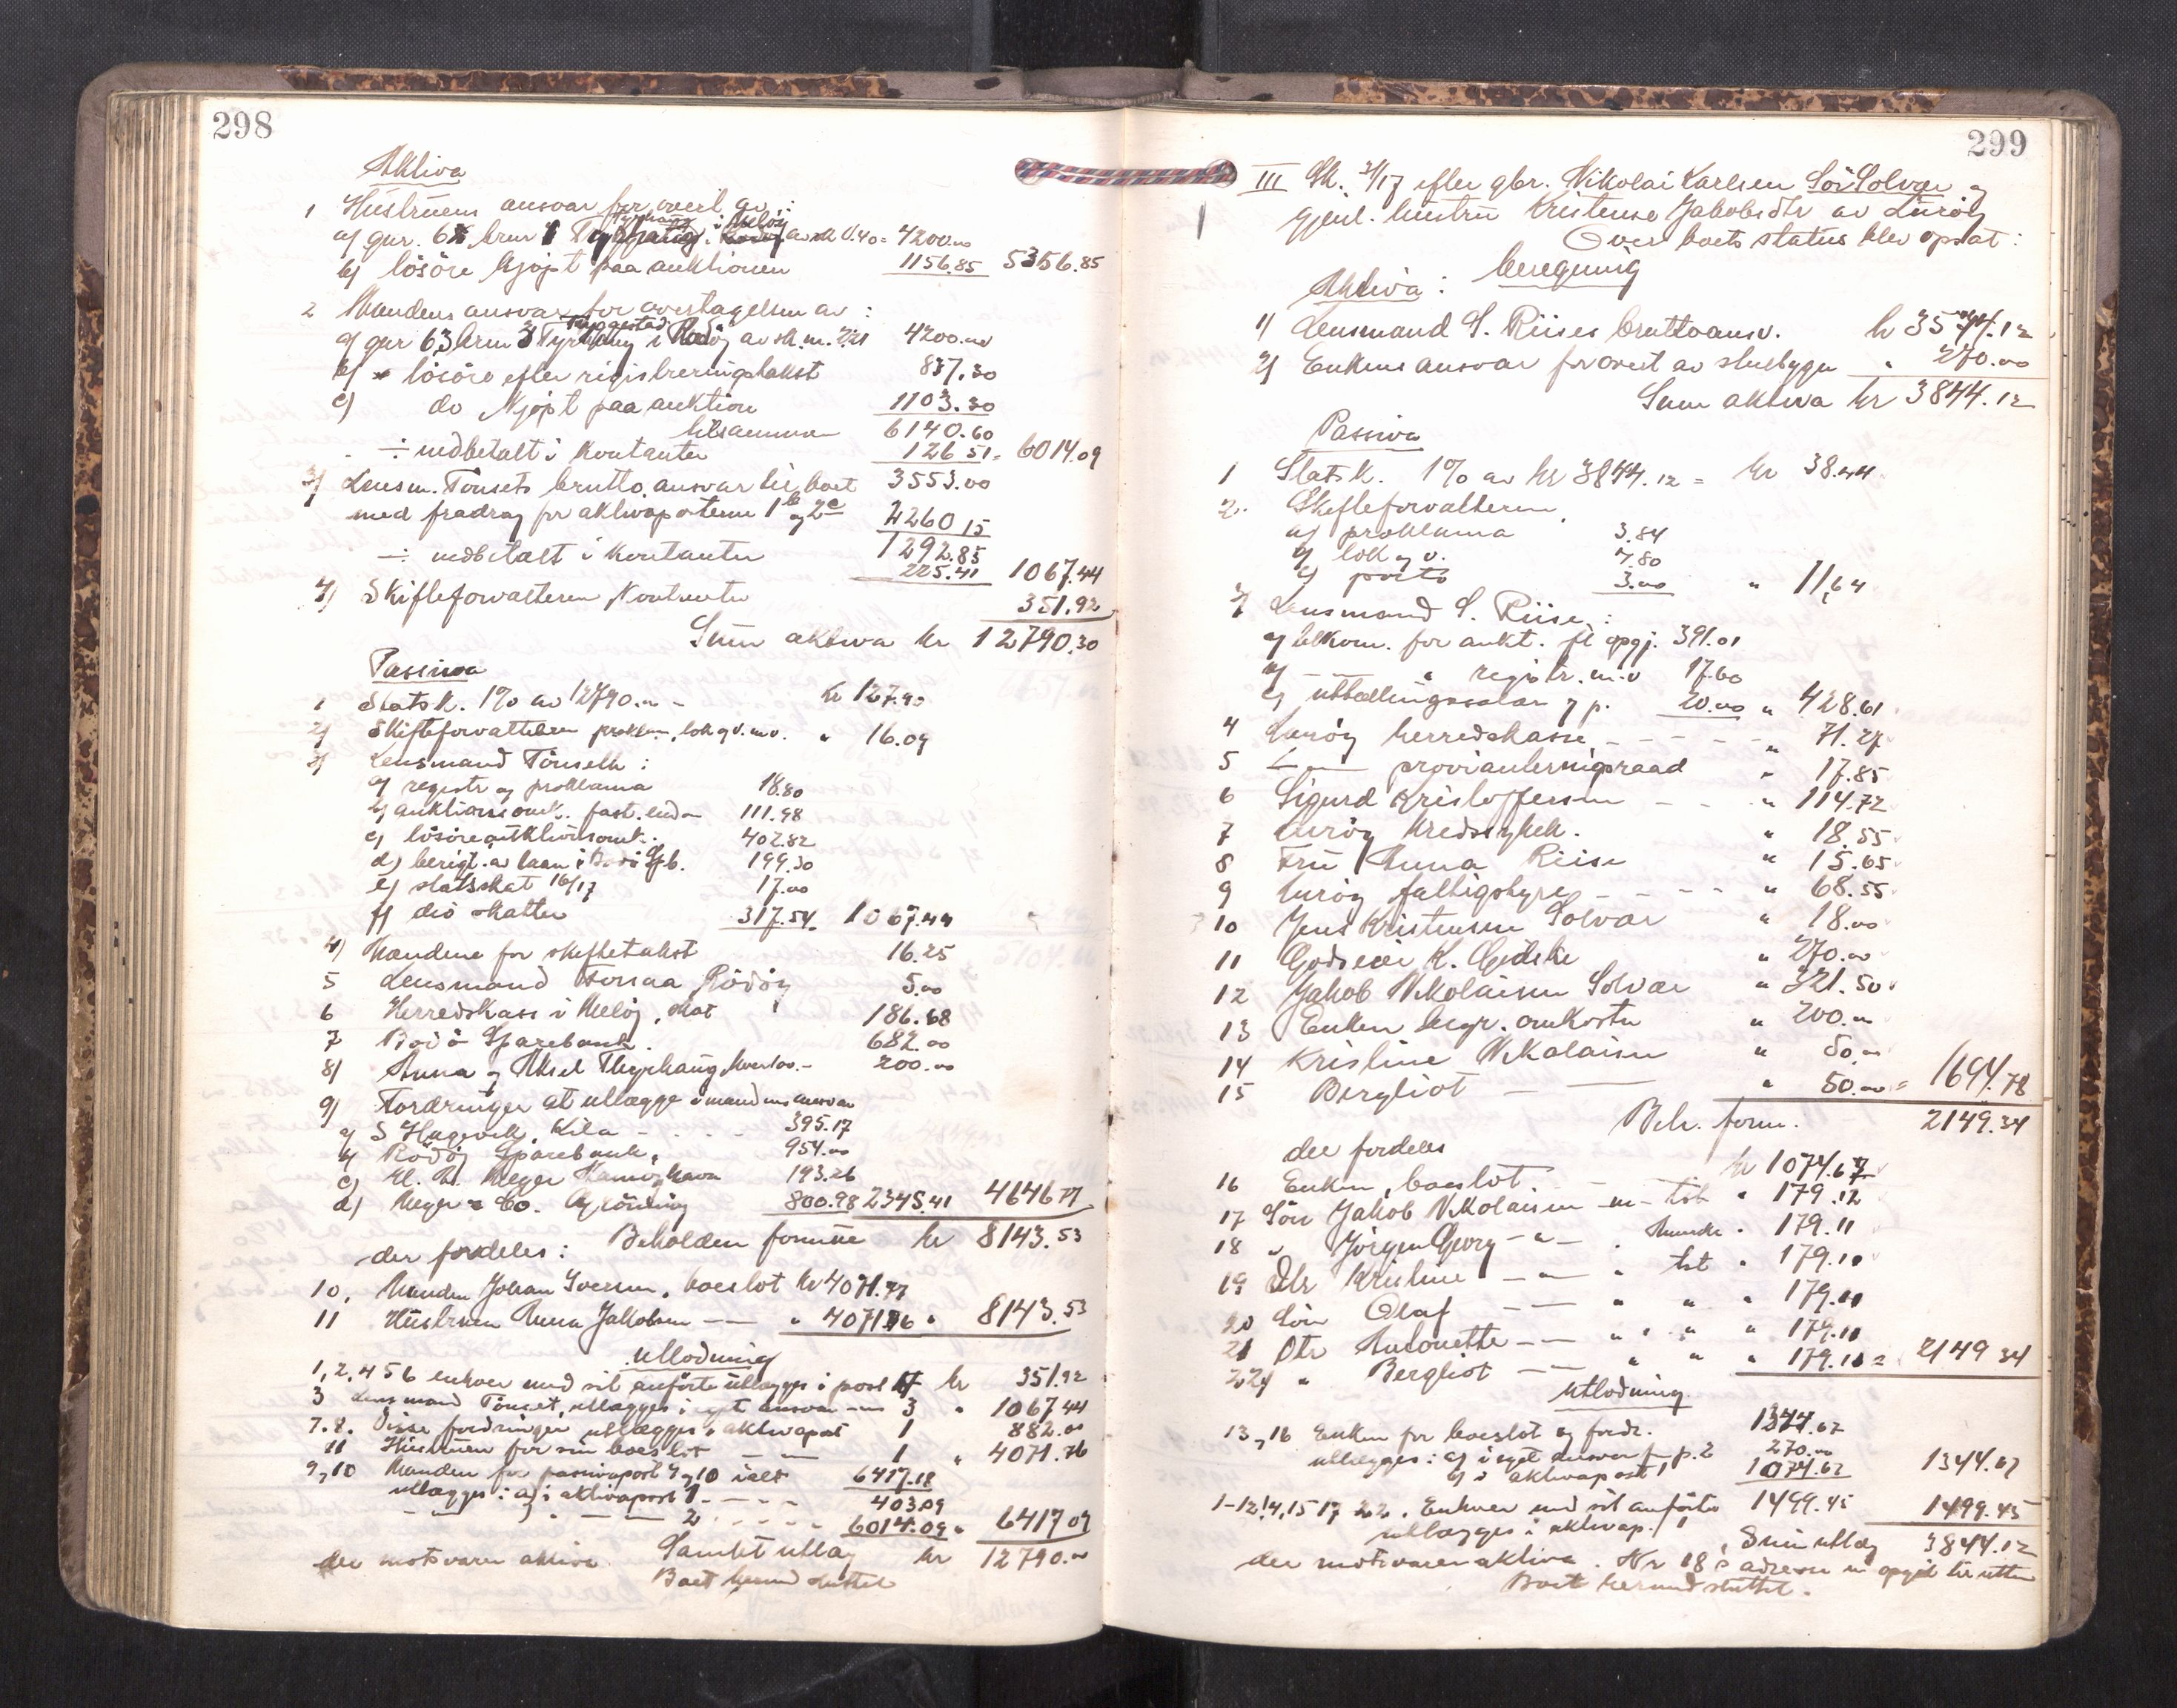 298
Aktiva
1 Hustruens ansvar for overt. av:
a) gnr. 63 brnr 1 i Meløy av sk m 0.40 = 4200.00
b) løsøre kjøpt paa auktionen 1156.85 5356.85
2 Mandens ansvar for overtagelsen av:
a) gnr 63 brnr 3 i Rødøy av sk.m. 4200.00
b) løsøre efter registreringstakst 837.30
c) do kjøpt paa auktion 1103.30
tilsammen 6140.60
÷ indbetalt i kontanter 126.51 = 6014.09
3) Lensm. Tønsets brutto ansvar til boet 3553.00
med fradrag for aktivaposterne 1 b og 2 c 2260.15
1292.85
÷ indbetalt i kontanter 225.41 1067.44
4) Skifteforvalteren kontanter 351.92
Sum aktiva kr 12790.30
Passiva
1 Statsk. 1% av 12790.00 - kr 127.90
2) Skifteforvalteren proklam, lok og v. m.v. " 16.09
3) Lensmand Tønseth:
a) registr og proklama 18.80
b) auktionsomk. fast. eiend 111.98
c) løsøreauktionsomk. 402.82
d) berigt. av laan i Bodø Spb. 199.30
e) statsskat 16/17 17.00
f) div skatter 317.54 1067.44
4) Mændene for skiftetakst 16.25
5 Lensmand Forsaa Rødøy 5.00
6 Herredskass i Meløy, skat 186.68
7 Bodø Sparebank 682.00
8) Anna og Aksel Thyvhaug hver 100.- 200.00
9) Fordringer at utlægge i mandens ansvar
a) S Hagevik, Kila 395.17
b) Rødøy Sparebank, 954.00
c) H. R. Meyer 193.26
d) Meyer & Co. Grönning 800.98 2343.41 4646.77
Beholden formue kr 8143.53
der fordeles:
10. Manden Johan Iversen, boeslot kr 4071.77
11 Hustruen Anna Jakobsen — " 4071.76 " 8143.53
utlodning
1, 2, 4 5 6 enhver med sit anførte utlægges i post 4 kr 351.92
3 Lensmand Tønset, utlægges i eget ansvar — 3 " 1067.44
7.8. Disse fordringer utlægges i aktivapost 1 882.00
11 Hustruen for sin boeslot — 1 " 4071.76
9 og 10 Manden for passivapost 9 og 10 ialt 6417.18
utlægges: a) i aktivapost 1 403.09
— — 2 6014.09 " 6417.09
Samlet utlæg kr 12790.00
der motsvarer aktiva.
Boet herved sluttet
299
III Sk. 3/17 efter gbr. Nikolai Karlsen Sør Solvær og
gjenl. hustru Kristense Jakobsdtr av Lurøy
Over boets status blev opsat:
beregning
Aktiva:
1) Lensmand S. Riises bruttoansv. kr 3574.12
2) Enkens ansvar for overt av stuebygn " 270.00
Sum aktiva kr 3844.12
Passiva
1 Statsk. 1% av kr 3844.12 = kr 38.44
2. Skifteforvalteren
a) proklama 3.84
b) lok og v. 7.80
c) porto 3.00 " 11.64
3) Lensmand S. Riise:
a) tilkom. for aukt. fl opgj. 391.01
b) — " registr. m.v 17.60
c) uttællingssalær og p. 20.00 " 428.61
4 Lurøy herredskasse " 71.27
5 — provianteringsraad " 17.85
6 Sigurd Kristoffersen " 114.72
7 Lurøy kredssykek. " 18.55
8 Fru Anna Riise " 15.65
9 Lurøy fattigstyre " 68.55
10 Jens Kristensen Solvær " 18.00
11 Godseier K. " 270.00
12 Jakob Nikolaisen Solvær " 321.50
13 Enken begr. omkostn " 200.00
14 Kristine Nikolaisen " 50.00
15 Bergliot — " 50.00 = 1694.78
Beh. form. 2149.34
der fordeles
16 Enken, boeslot. kr 1074.67
17 Søn Jakob Nikolaisen — " 179.12
18 " Jørgen Georg — " 179.11
19 Dtr Kristine — " 179.11
20 Søn Olaf — " " " 179.11
21 Dtr Antonette — " " " 179.11
22) " Bergliot — " " " 179.11 = 2149.34
utlodning
13 og 16 Enken for boeslot og fordr. 1344.67
utlægges: a) i eget ansvar f p. 2 270.00
b) i aktivapost 1 1074.67 1344.67
1-12, 14, 15 17 22. Enhver med sit anførte 1499.45 1499.45
utlægges i aktivap. 1
Sum utlæg 3844.12
der motsvarer aktiva. Nr 18's adresse er opgit til utten
Boet herved sluttet.